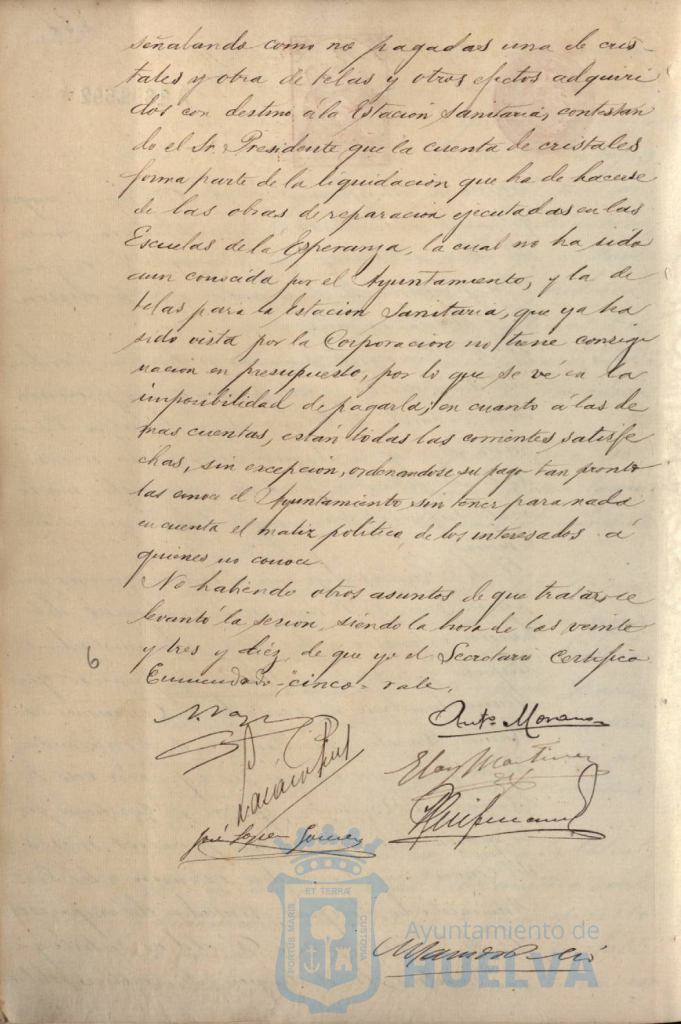 señalando como no pagadas una de cris-
tales y otra de telas y otros efectos adquiri
dos con destino á la Estacion Sanitaria, contestan
do el Sr. Presidente que la cuenta de cristales
forma parte de la liquidacion que ha de hacerse
de las obras de reparacion ejecutadas en las
Escuelas de la Esperanza, la cual no ha sido
aun conocida por el Ayuntamiento, y la de
telas para la Estacion Sanitaria, que ya ha
sido vista por la Corporacion no tiene consig
nacion en presupuesto, por lo que se vé en la
imposibilidad de pagarla; en cuanto á las de
mas cuentas, están todas las corrientes, satisfe
chas, sin excepción, ordenandose su pago tan pronto
las conoce el Ayuntamiento sin tener para nada
en cuenta el matiz politico de los interesados á
quienes no conoce.
No habiendo otros asuntos de que tratar se
levantó la sesion, siendo la hora de las veinte
y tres y diez, de que yo el Secretario certifico.
Enmendado - cinco - vale.
6
Antº Moreno
Eloy Martinez
José Lopez Gomez
PORTUS MARIS ET TERRÆ CUSTODIA
Ayuntamiento de
HUELVA